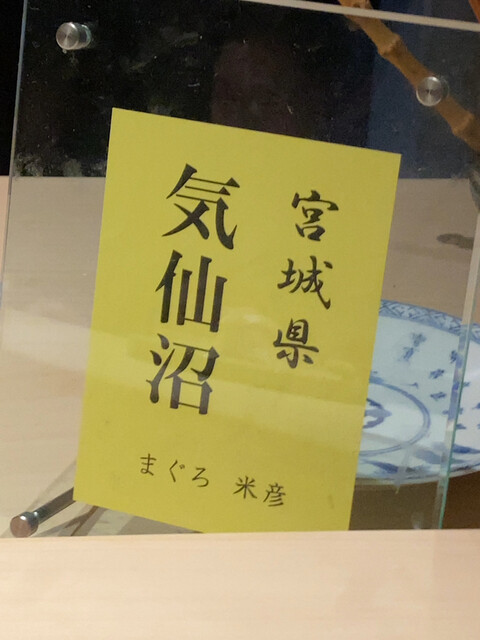 宮城県
気仙沼
まぐろ 米彦